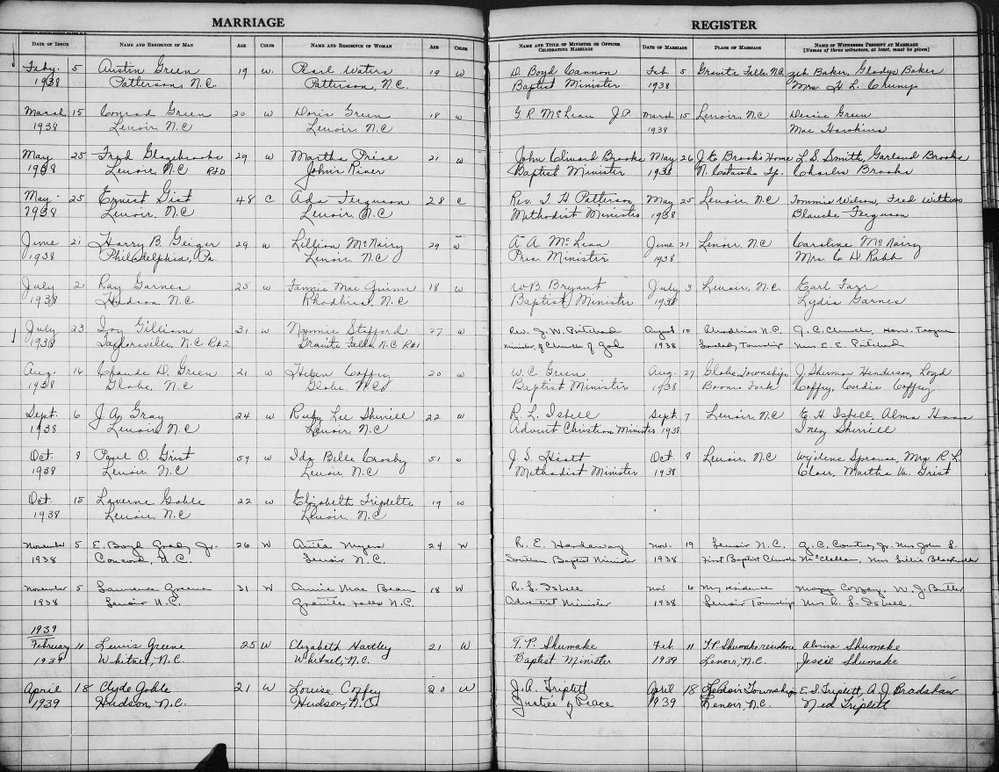 MARRIAGE REGISTER
DATE OF ISSUE NAME AND RESIDENCE OF MAN AGE COLOR NAME AND RESIDENCE OF WOMAN AGE COLOR NAME AND TITLE OF MINISTER OR OFFICER CELEBRATING MARRIAGE DATE OF MARRIAGE PLACE OF MARRIAGE NAME OF WITNESSES PRESENT AT MARRIAGE (Names of three witnesses, at least, must be given)
Feby. 5 Austin Green 19 W. Pearl Waters 19 W D. Boyd Cannon Feb. 5 Granite Falls N.C. Zeb Baker, Gladys Baker
1938 Patterson, N.C. Patterson, N.C. Baptist Minister 1938 Mrs H. L. Crump
March 15 Conrad Green 20 W Doris Green 18 W G R McLean J.P. March 15 Lenoir, N.C Green
1938 Lenoir N.C Lenoir N.C 1938 Mae Hawkins
May 25 Fred Glazebrooks 29 W Martha Price 21 W John Brooks May 26 J E Brooks Home L S Smith, Garland Brooks
1938 Lenoir N.C John's River Baptist Minister 1938 N. Catawba Tp. Charles Brooks
May 25 Ernest Gist 48 C Ada Ferguson 28 C Rev. T. H Patterson May 25 Lenoir, N.C Tommie Wilson, Fred
1938 Lenoir, N.C Lenoir N.C Methodist Minister 1938 Blanche Ferguson
June 21 Harry B. Geiger 29 W Lillian McNairy 29 W A A McLean June 21 Lenoir, N.C Caroline McNairy
1938 Philadelphia, Pa. Lenoir N.C Pres. Minister 1938 Mrs C H Rabb
July 2 Ray Garnes 25 W Fannie Mae Guinn 18 W W B Bryant July 3 Lenoir, N.C. Earl
1938 Hudson N.C Rhodhiss, N.C Baptist Minister 1938 Lydia Garnes
July 23 Gilliam 31 W Nannie Stafford 27 W Rev. J. W. Pritchard August 10 Rhodhiss N.C.
1938 Taylorsville, N.C Rt 2 Granite Falls, N.C Rt 1 Minister of Church of God 1938 Lovelady Township Mrs E. E. Pritchard
Aug. 14 Claude D. Green 21 W Helen Coffey 20 W W. C Green Aug. 27 Globe Township J. Sherman Henderson, Loyd
1938 Globe, N.C Globe, N.C Baptist Minister 1938 Boones Fork Coffey, Coffey
Sept. 6 Gray 24 W Ruby Lee Sherrill 22 W R. L. Isbell Sept. 7 Lenoir, N.C E H Isbell, Alma Haas
1938 Lenoir N.C Lenoir, N.C Advent Christian Minister 1938 Inez Sherrill
Oct. 8 Paul O. Grist 59 W Ida Belle Crosby 51 W J. S. Hiatt Oct. 8 Lenoir, N.C Sprouse, Mrs R. L.
1938 Lenoir, N.C Lenoir N.C Methodist Minister 1938 Clair, Martha M. Grist
Oct. 15 Laverne Goble 22 W Elizabeth Triplette 19 W
1938 Lenoir, N.C Lenoir, N.C
November 5 E. Boyd Grady Jr. 26 W Anita Myers 24 W R. E. Hardaway Nov. 19 Lenoir N.C. Jr. Mrs John L.
1938 Concord, N.C. Lenoir N.C. Southern Baptist Minister 1938 First Baptist Church McClellan, Miss Lillie
November 5 Lawrence Greene 31 W Annie Mae Bean 18 W R. L. Isbell Nov 6 My residence Mary Coffey, W. J. Butler
1938 Lenoir N.C. Granite Falls N.C. Advent Minister 1938 Lenoir Township Mrs R. L. Isbell.
1939
February 11 Lewis Greene 25 W Elizabeth Hartley 21 W T. P. Shumake Feb 11 T.P. Shumake residence Alvin Shumake
1939 Whitnel, N.C. Whitnel, N.C. Baptist Minister 1939 Lenoir, N.C. Jessie Shumake
April 18 Clyde Goble 21 W Louise Coffey 20 W J. A. Triplett April 18 Lenoir Township E. S. Triplett, A. J. Bradshaw
1939 Hudson, N.C. Hudson, N.C Justice of Peace 1939 Lenoir, N.C. Ned Triplett